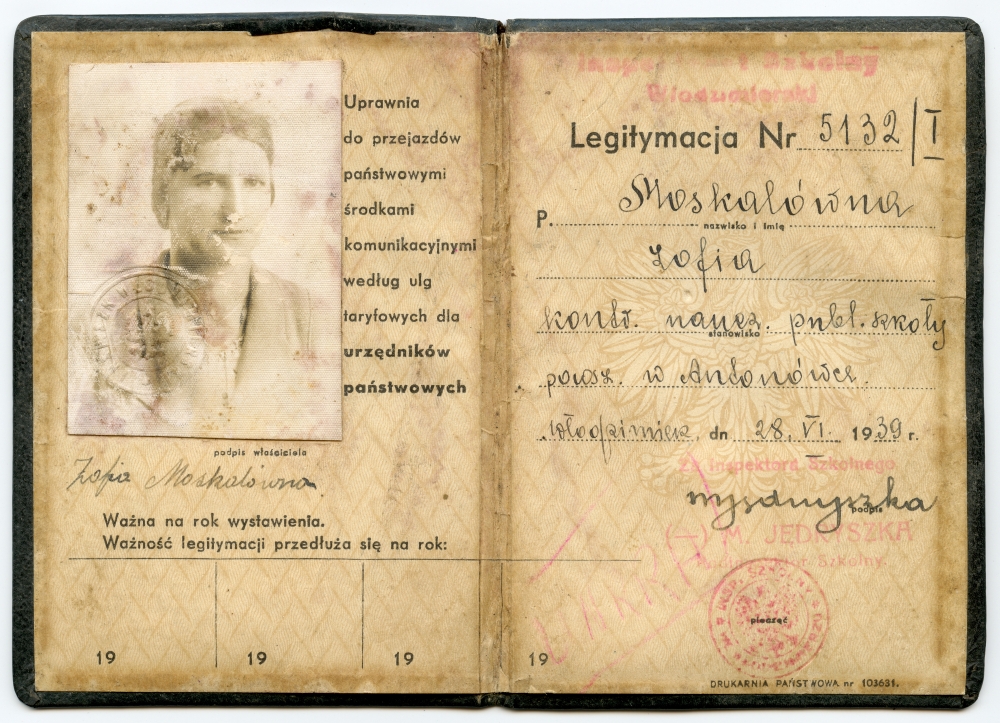 Uprawnia
do przejazdów
państwowymi
środkami
komunikacyjnymi
według ulg
taryfowych dla
urzędników
państwowych
podpis właściciela
Zofia Moskalówna
Ważna na rok wystawienia.
Ważność legitymacji przedłuża się na rok:
19 19 19 19
Szkolny
Legitymacja Nr 5132/I
P. Moskalówna
nazwisko i imię
Zofia
kontr. naucz. publ. szkoły
stanowisko
powsz. w Antonówce.
Włodzimierz, dn 28. VI. 1939 r.
Za Inspektora Szkolnego
podpis
(—) M. JĘDRYSZKA
Szkolny.
INSP. SZKOLNY
pieczęć
DRUKARNIA PAŃSTWOWA nr 103631.